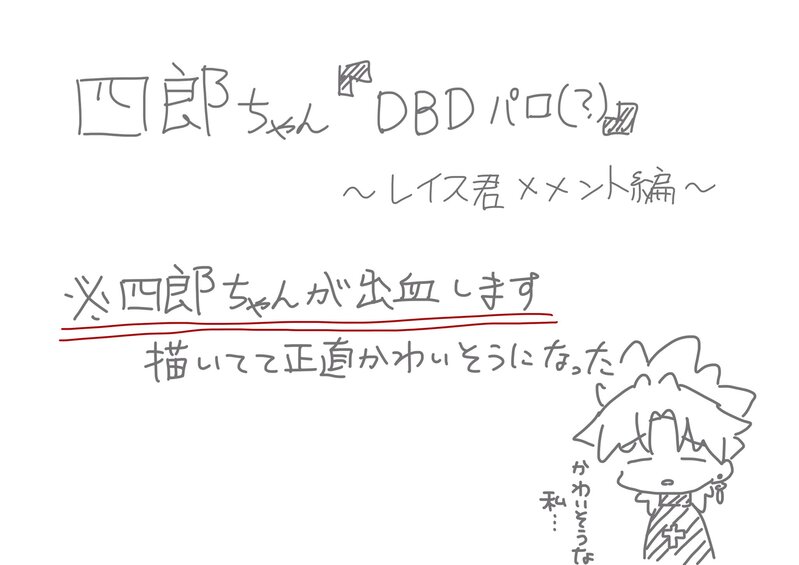 四郎ちゃん『DBDパロ(?)』
～レイス君メメント編～
※四郎ちゃんが出血します
描いてて正直かわいそうになった
かわいそうな
私…